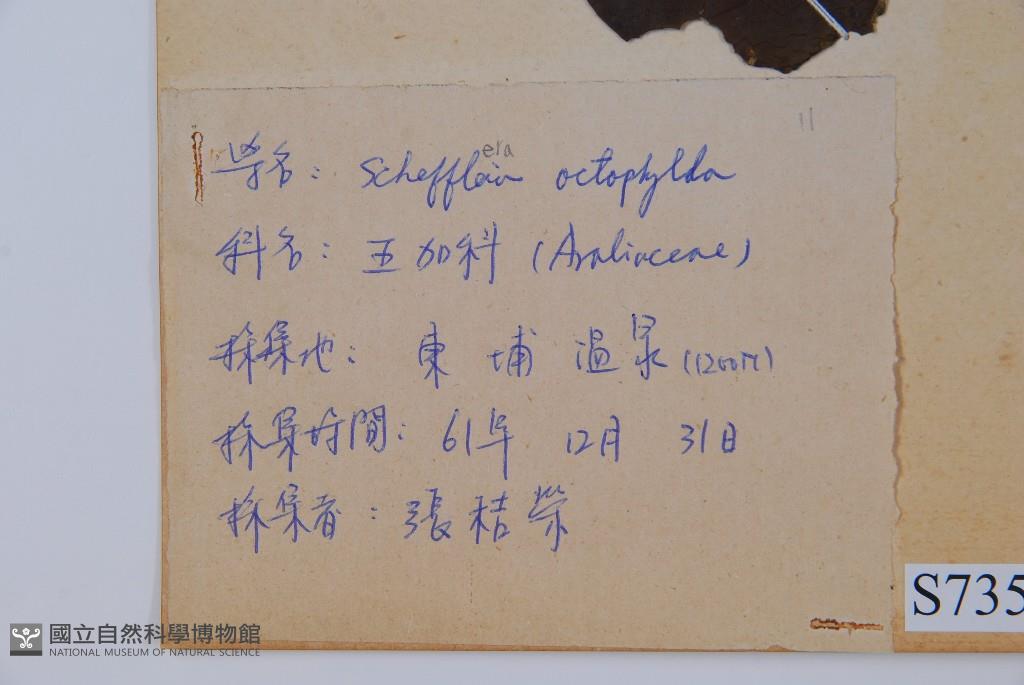 11
era
学名: Schefflera octophylla
科名: 五加科 (Araliaceae)
採集地: 東埔温泉 (1200M)
採集時間: 61年 12月 31日
採集者: 張桔榮
S735
國立自然科學博物館
NATIONAL MUSEUM OF NATURAL SCIENCE